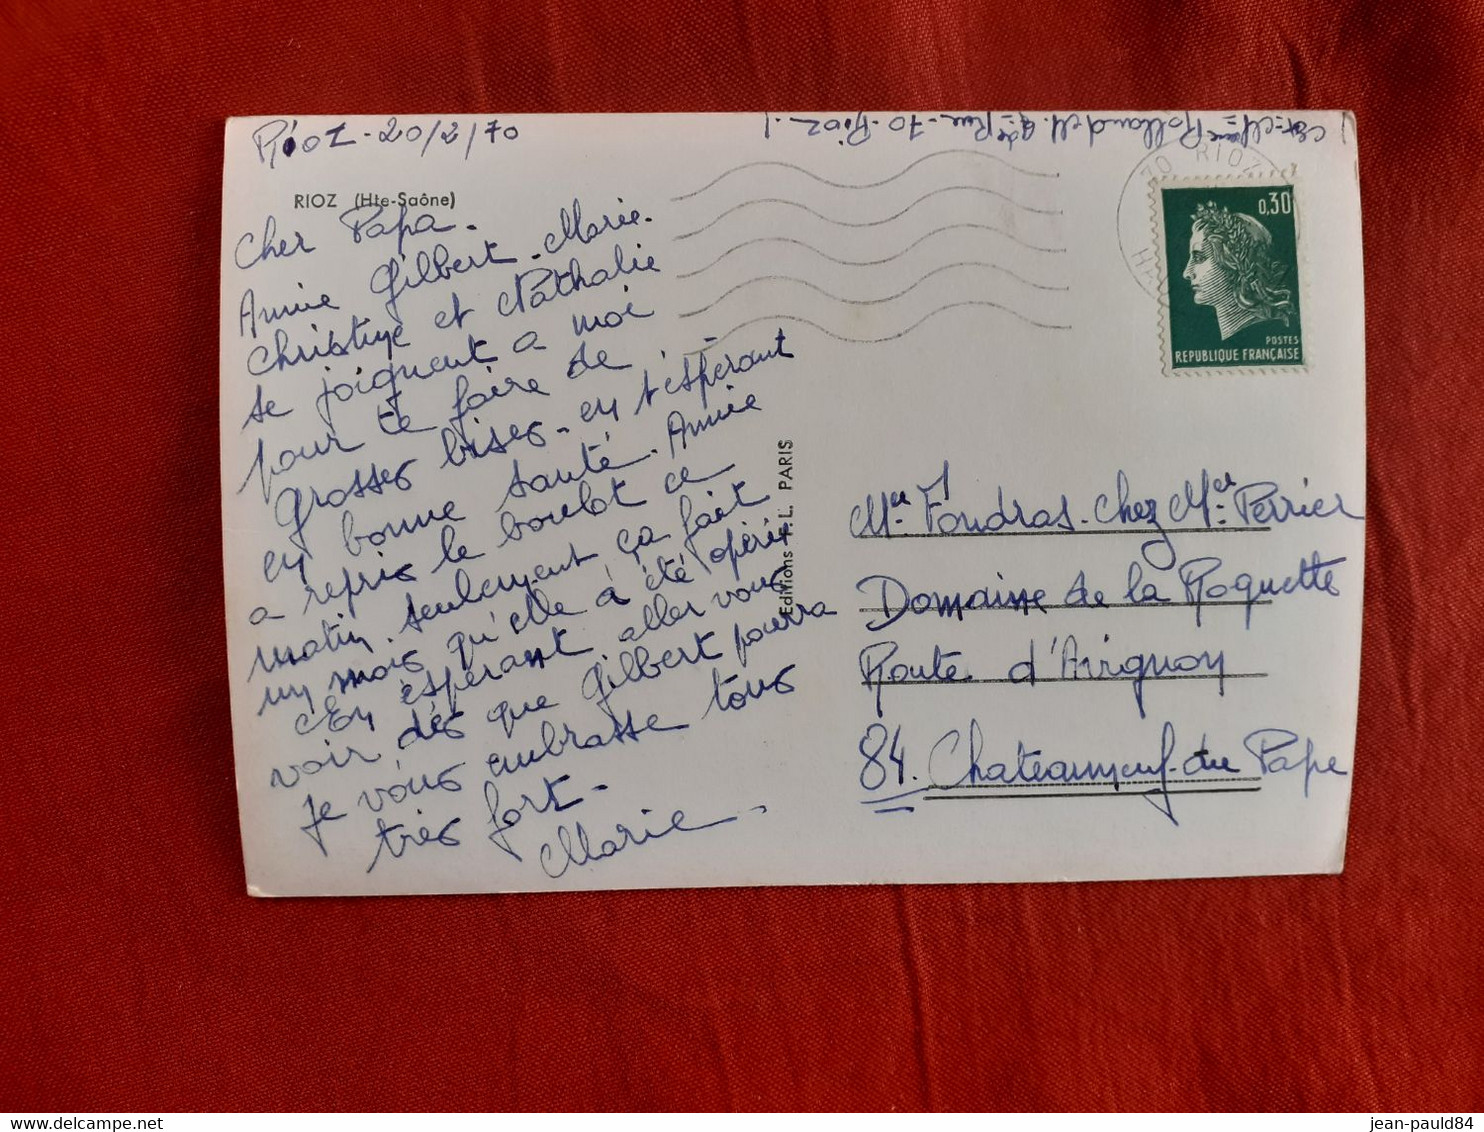 Rioz - 20/2/70
RIOZ (Hte-Saône)
Cher Papa.
Annie Gilbert. Marie.
Christine et Nathalie
se joignent a moi
pour te faire de
grosses bises - en t'espérant
en bonne santé. Annie
a repris le boulot ce
matin. seulement, ça fait
un mois qu'elle a été opérée
En espérant aller vous
voir dès que Gilbert pourra
je vous embrasse tous
très fort -
Marie - .
Editions P.L. PARIS
Rolland M. Gde Rue - 70 - Rioz -
70 RIOZ
0,30
POSTES
REPUBLIQUE FRANÇAISE
Mr Fondras. chez Mr Perrier
Domaine de la Roquette
Route d'Avignon
84. Chateauneuf-du Pape
jean-pauld84